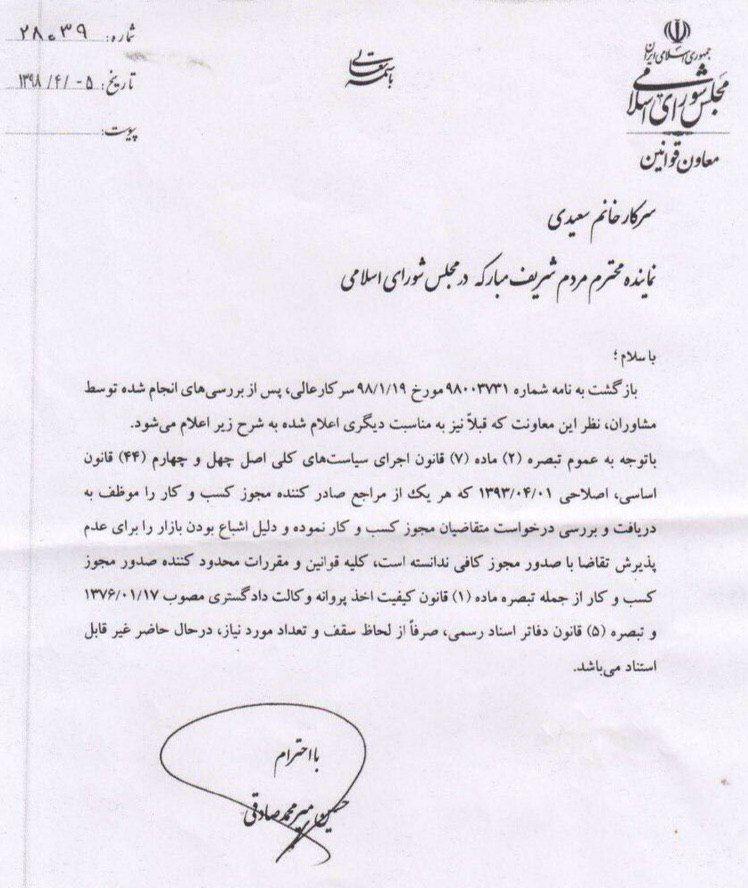 جمهوری اسلامی ایران
مجلس شورای اسلامی
معاون قوانین
باسمه تعالی
شماره: ۲۸۰۳۹
تاریخ: ۱۳۹۸/۴/۰۵
پیوست:
سرکار خانم سعیدی
نماینده محترم مردم شریف مبارکه در مجلس شورای اسلامی
با سلام؛
بازگشت به نامه شماره ۹۸۰۰۳۷۳۱ مورخ ۹۸/۱/۱۹ سرکار عالی، پس از بررسی‌های انجام شده توسط
مشاوران، نظر این معاونت که قبلاً نیز به مناسبت دیگری اعلام شده به شرح زیر اعلام می‌شود.
باتوجه به عموم تبصره (۲) ماده (۷) قانون اجرای سیاست‌های کلی اصل چهل و چهارم (۴۴) قانون
اساسی، اصلاحی ۱۳۹۳/۰۴/۰۱ که هر یک از مراجع صادر کننده مجوز کسب و کار را موظف به
دریافت و بررسی درخواست متقاضیان مجوز کسب و کار نموده و دلیل اشباع بودن بازار را برای عدم
پذیرش تقاضا با صدور مجوز کافی ندانسته است، کلیه قوانین و مقررات محدود کننده صدور مجوز
کسب و کار از جمله تبصره ماده (۱) قانون کیفیت اخذ پروانه وکالت دادگستری مصوب ۱۳۷۶/۰۱/۱۷
و تبصره (۵) قانون دفاتر اسناد رسمی، صرفاً از لحاظ سقف و تعداد مورد نیاز، درحال حاضر غیر قابل
استناد می‌باشد.
با احترام
حسین میرمحمد صادقی